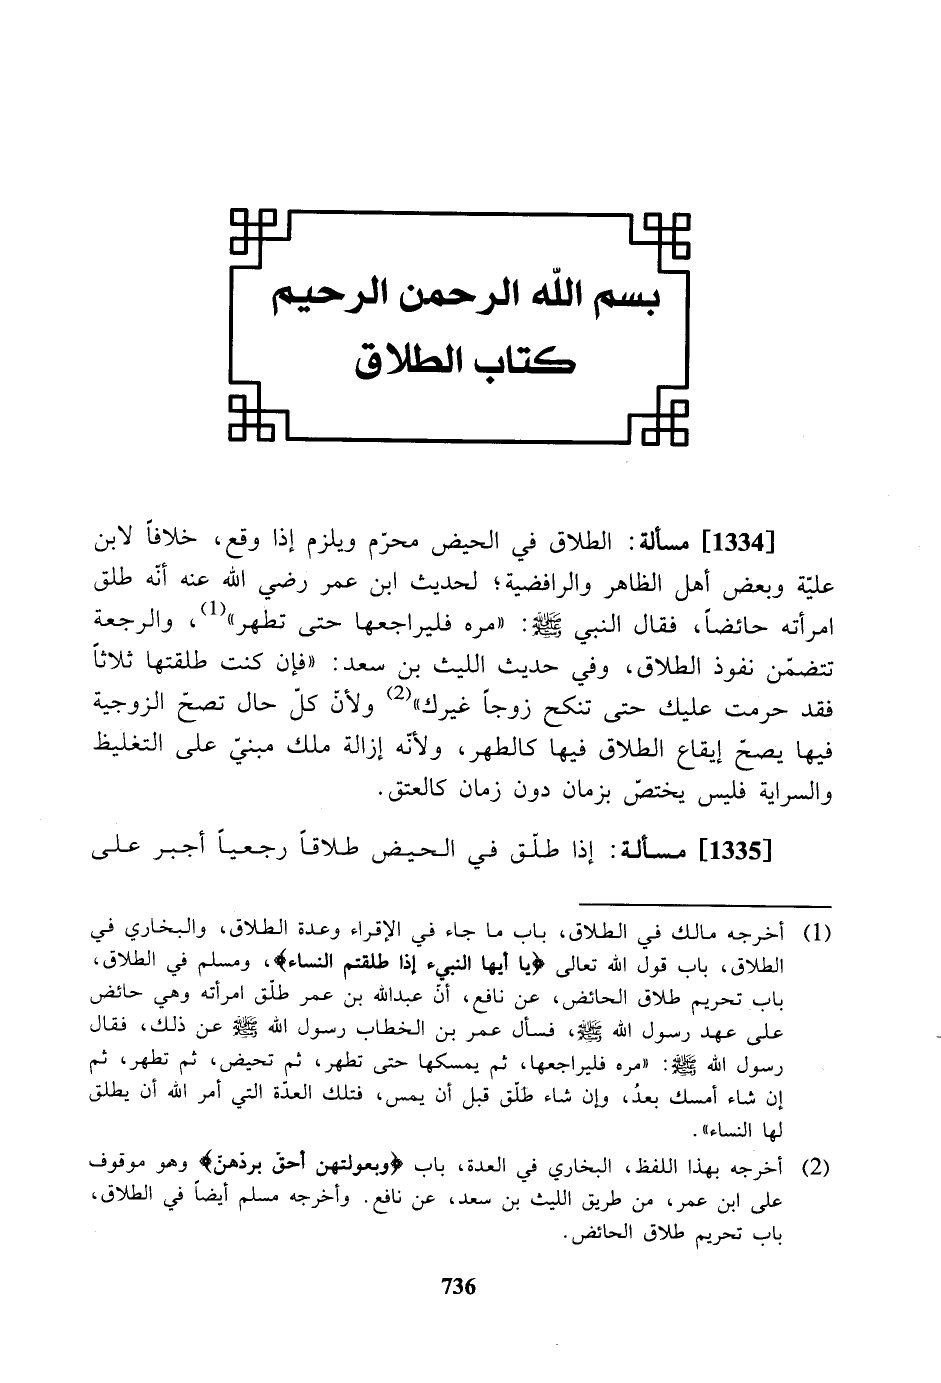 بسم الله الرحمن الرحيم
كتاب الطلاق
[1334] مسألة: الطلاق في الحيض محرّم ويلزم إذا وقع، خلافاً لابن
عليّة وبعض أهل الظاهر والرافضية؛ لحديث ابن عمر رضي الله عنه أنّه طلق
امرأته حائضاً، فقال النبي ﷺ: «مره فليراجعها حتى تطهر»(1)، والرجعة
تتضمّن نفوذ الطلاق، وفي حديث الليث بن سعد: «فإن كنت طلقتها ثلاثاً
فقد حرمت عليك حتى تنكح زوجاً غيرك»(2) ولأنّ كلّ حال تصحّ الزوجية
فيها يصحّ إيقاع الطلاق فيها كالطهر، ولأنّه إزالة ملك مبنيّ على التغليظ
والسراية فليس يختصّ بزمان دون زمان كالعتق.
[1335] مسألة: إذا طلّق في الحيض طلاقاً رجعياً أجبر على
(1) أخرجه مالك في الطلاق، باب ما جاء في الإقراء وعدة الطلاق، والبخاري في
الطلاق، باب قول الله تعالى ﴿يا أيها النبيء إذا طلقتم النساء﴾، ومسلم في الطلاق،
باب تحريم طلاق الحائض، عن نافع، أنّ عبدالله بن عمر طلّق امرأته وهي حائض
على عهد رسول الله ﷺ، فسأل عمر بن الخطاب رسول الله ﷺ عن ذلك، فقال
رسول الله ﷺ: «مره فليراجعها، ثم يمسكها حتى تطهر، ثم تحيض، ثم تطهر، ثم
إن شاء أمسك بعدُ، وإن شاء طلّق قبل أن يمس، فتلك العدّة التي أمر الله أن يطلق
لها النساء».
(2) أخرجه بهذا اللفظ، البخاري في العدة، باب ﴿وبعولتهن أحقّ بردّهنّ﴾ وهو موقوف
على ابن عمر، من طريق الليث بن سعد، عن نافع. وأخرجه مسلم أيضاً في الطلاق،
باب تحريم طلاق الحائض.
736